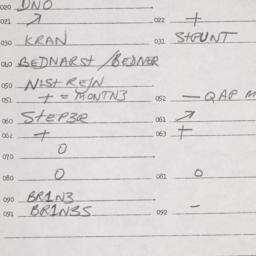 020 DNO
021 ↗ 022 +
030 KRAN 031 STPUNT
040 BEDNARST / BEDNER
050 NIST RE/N
051 + = MONTN3 052 — QAP M
060 STEP3R 061 ↗
062 + 063 +
070 0
080 0 081 0
090 BR1N3
091 BR1N3S 092 —